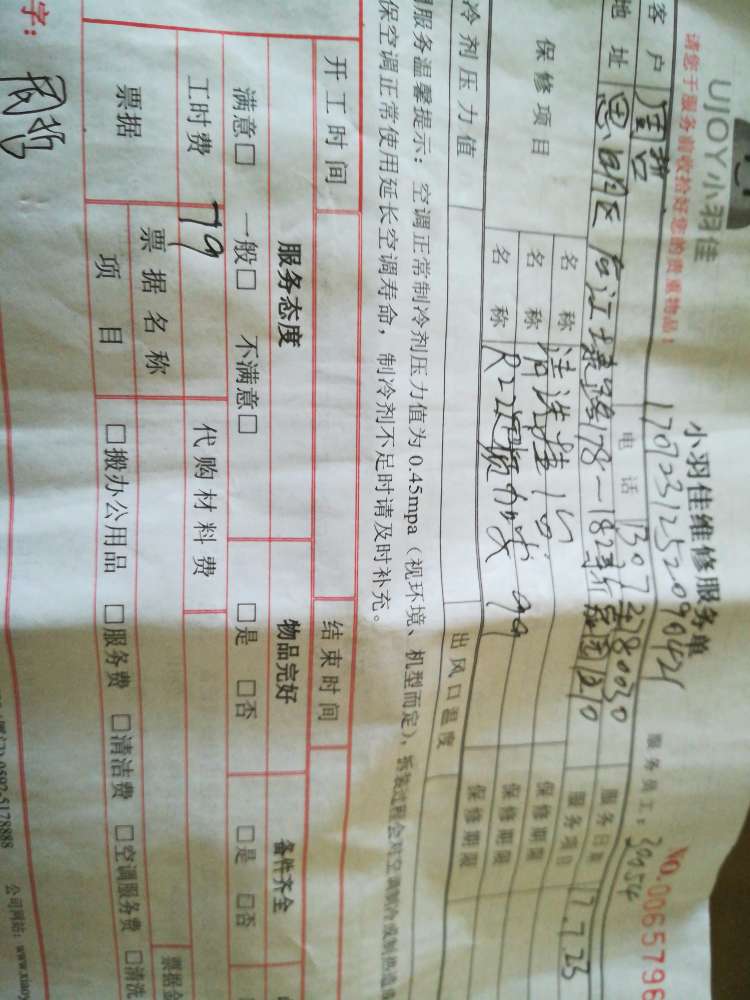 UJOY小羽佳
请您于服务前收拾好您的贵重物品！
小羽佳维修服务单
No.0065796
1707231252090424
服务员工：
客户
电话
服务日期 17.7.23
地址 思明区
服务项目
保修项目
名称 清洗挂
保修期限
名称
保修期限
名称 R22 加 99
保修期限
冷剂压力值
出风口温度
服务温馨提示：空调正常制冷剂压力值为0.45mpa（视环境、机型而定），拆装过程会对空调制冷或制热造
保空调正常使用延长空调寿命，制冷剂不足时请及时补充。
开工时间
结束时间
服务态度
物品完好
备件齐全
满意□ 一般□ 不满意□
□是 □否
□是 □否
工时费 79
代购材料费
票据
票据名称
票据金
项目
□搬办公用品 □服务费 □清洁费 □空调服务费 □清洗
字：
0592-5178888
公司网站：www.xiaoy